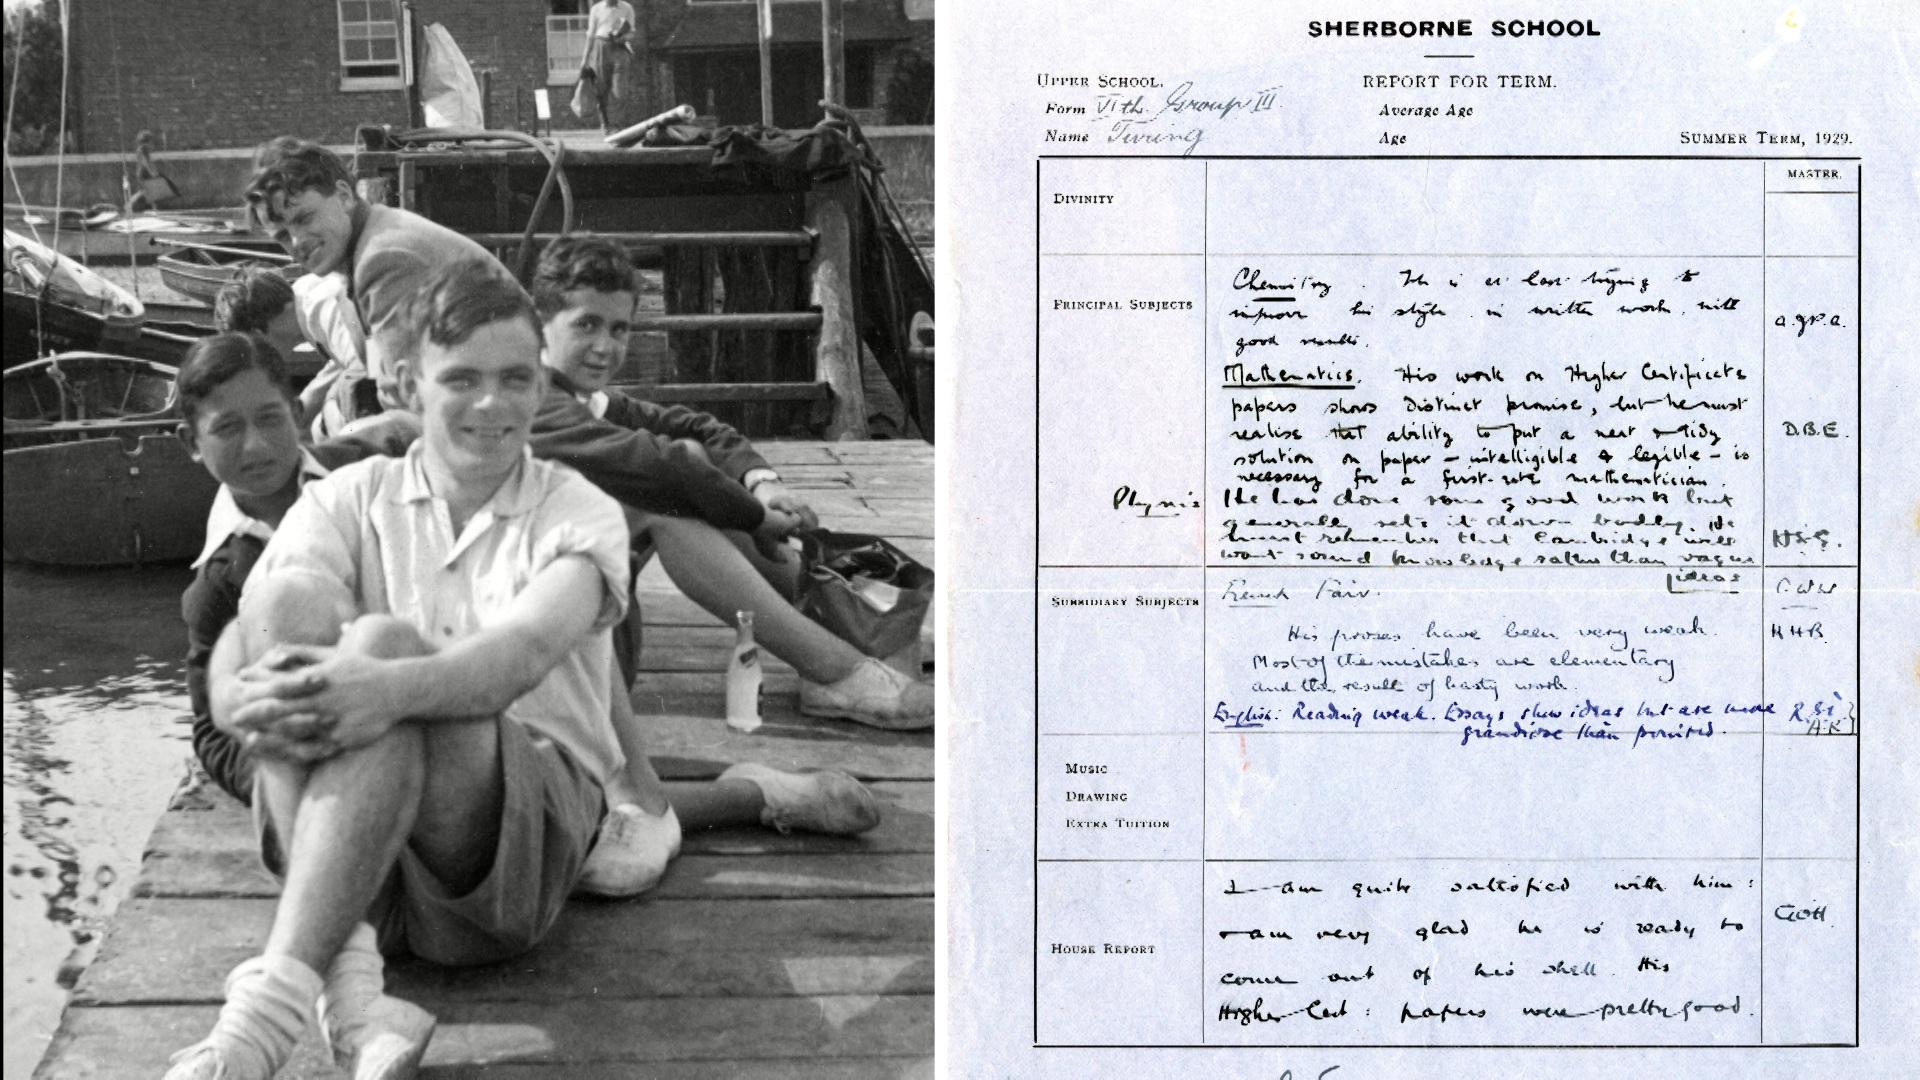 SHERBORNE SCHOOL
UPPER SCHOOL.
REPORT FOR TERM.
Form VIth Group III.
Average Age
Name Turing
Age
SUMMER TERM, 1929.
MASTER.
DIVINITY
PRINCIPAL SUBJECTS
Chemistry. He is at last trying to
improve his style in written work, with
good results.
A.J.P.A.
Mathematics. His work on Higher Certificate
papers shows distinct promise, but he must
realise that ability to put a neat & tidy
solution on paper – intelligible & legible – is
necessary for a first-rate mathematician.
D.B.E.
Physics
He has done some good work but
generally sets it down badly. He
must remember that Cambridge will
want sound knowledge rather than vague
ideas
H.S.G.
SUBSIDIARY SUBJECTS
French Fair.
His proses have been very weak.
H H B.
Most of the mistakes are elementary
and the result of hasty work.
English: Reading weak. Essays show ideas but are more
grandiose than
MUSIC
DRAWING
EXTRA TUITION
HOUSE REPORT
I am quite satisfied with him:
am very glad he is ready to
come out of his shell. His
Higher Cert: papers were pretty good.
GOH